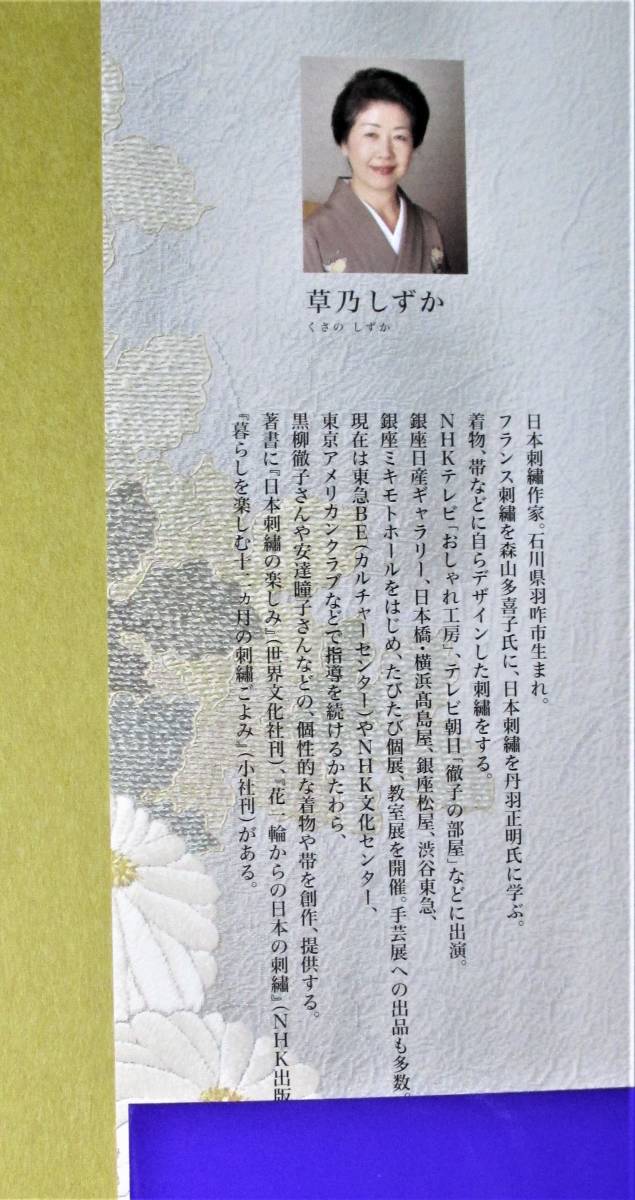 草乃しずか
くさの しずか
日本刺繡作家。石川県羽咋市生まれ。
フランス刺繡を森山多喜子氏に、日本刺繡を丹羽正明氏に学ぶ。
着物、帯などに自らデザインした刺繡をする。
NHKテレビ「おしゃれ工房」、テレビ朝日「徹子の部屋」などに出演。
銀座日産ギャラリー、日本橋・横浜髙島屋、銀座松屋、渋谷東急、
銀座ミキモトホールをはじめ、たびたび個展、教室展を開催。手芸展への出品も多数。
現在は東急BE(カルチャーセンター)やNHK文化センター、
東京アメリカンクラブなどで指導を続けるかたわら、
黒柳徹子さんや安達瞳子さんなどの、個性的な着物や帯を創作、提供する。
著書に『日本刺繡の楽しみ』(世界文化社刊)、『花一輪からの日本の刺繡』(NHK出版
『暮らしを楽しむ十二ヵ月の刺繡ごよみ』(小社刊)がある。